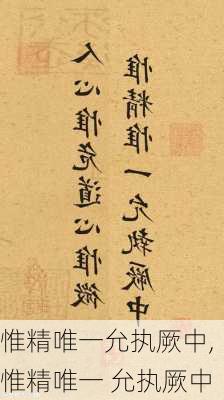 人心惟危道心惟微
惟精惟一允執厥中
惟精唯一允执厥中,
惟精唯一 允执厥中